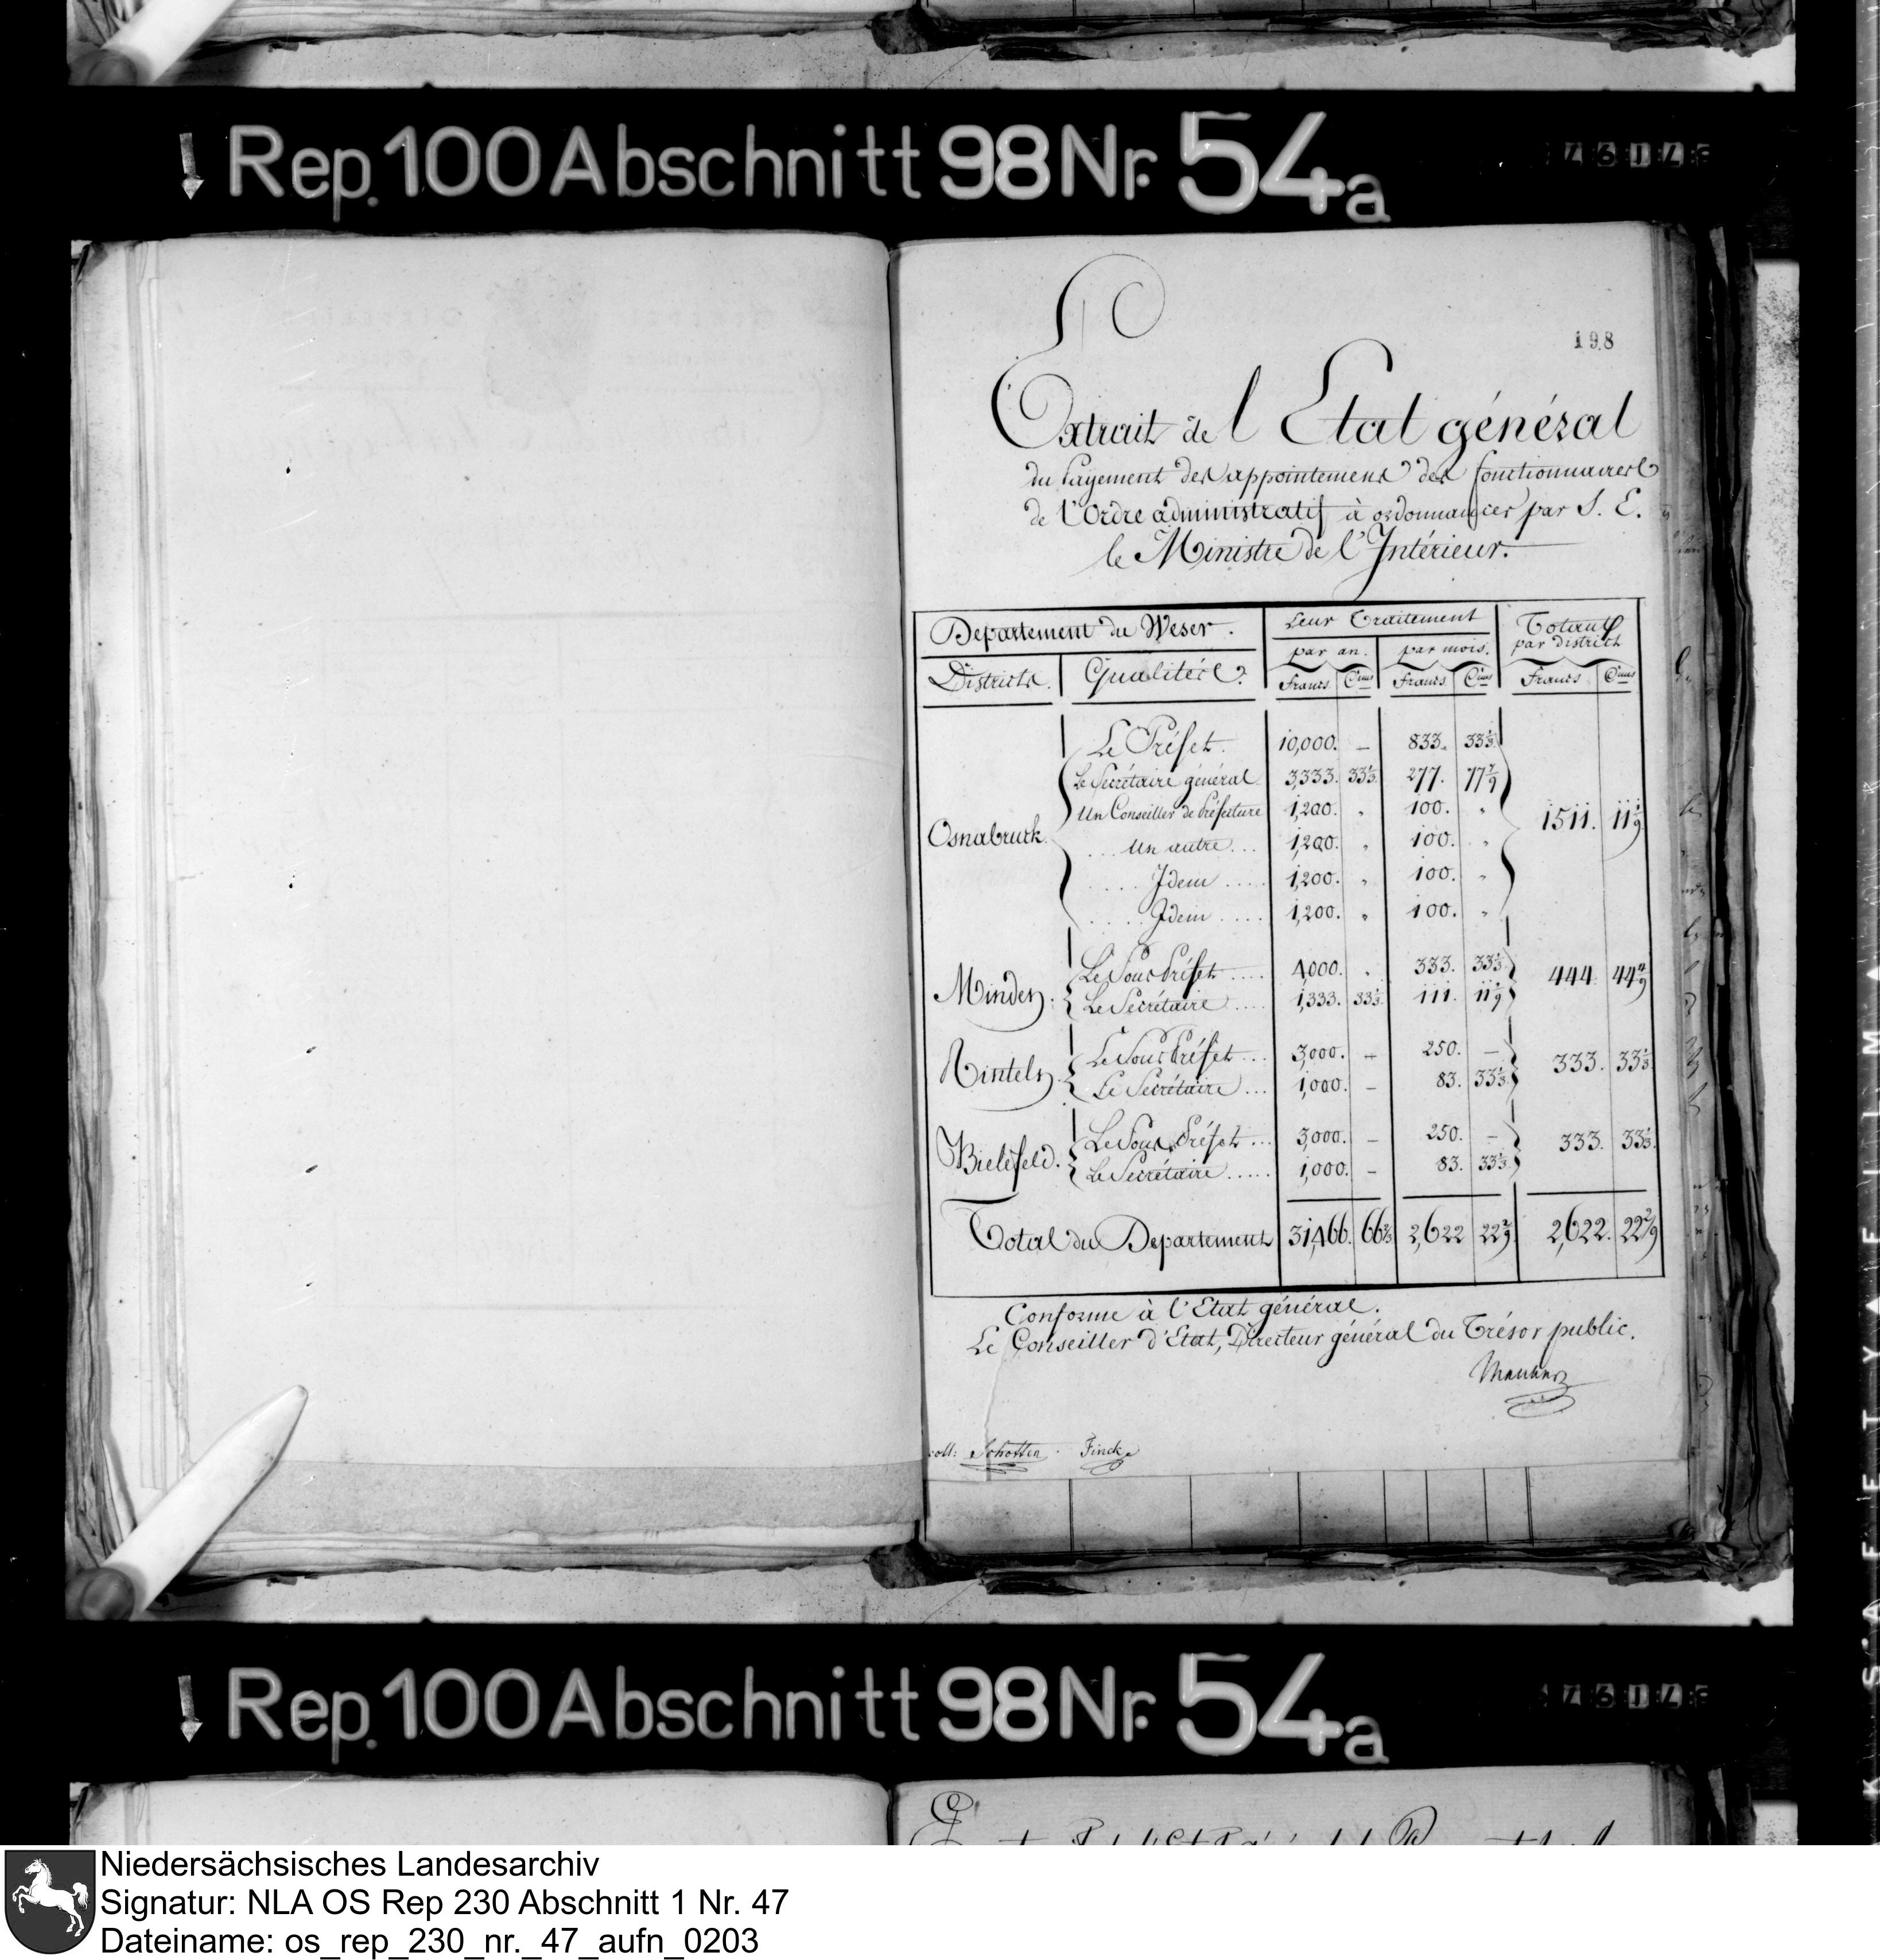 Rep. 100 Abschnitt 98 Nr. 54a
198
Extrait de l'Etat général
du Payement des appointemens des fonctionnaires
de l'Ordre administratif à ordonnancer par S. E.
le Ministre de l'Intérieur.
Departement du Weser. Leur Traitement Totaux par districts
Districts. Qualités. par an. par mois.
francs Cimes francs Cimes Francs Cimes
Le Préfet. 10,000. — 833. 33⅓
Le Secrétaire général 3,333. 33⅓ 277. 77 7/9
Un Conseiller de Préfecture 1,200. " 100. "
Osnabruck. 1511. 11 1/9
... Un autre ... 1,200. " 100. "
.... Idem .... 1,200. " 100. "
.... Idem .... 1,200. " 100. "
Le Sous Préfet .... 4000. " 333. 33⅓
Minden. 444. 44 4/9
Le Secrétaire .... 1,333. 33⅓ 111. 11 1/9
Le Sous Préfet ... 3,000. — 250. —
Rinteln. 333. 33⅓
Le Secrétaire ... 1,000. — 83. 33⅓
Le Sous Préfet ... 3,000. — 250. —
Bielefeld. 333. 33⅓
Le Secrétaire ..... 1,000. — 83. 33⅓
Total du Departement 31,466. 66⅔ 2,622 22 2/9 2,622. 22 2/9
Conforme à l'Etat général.
Le Conseiller d'Etat, Directeur général du Trésor public.
coll: Schotten. Finck
Rep. 100 Abschnitt 98 Nr. 54a
Niedersächsisches Landesarchiv
Signatur: NLA OS Rep 230 Abschnitt 1 Nr. 47
Dateiname: os_rep_230_nr._47_aufn_0203